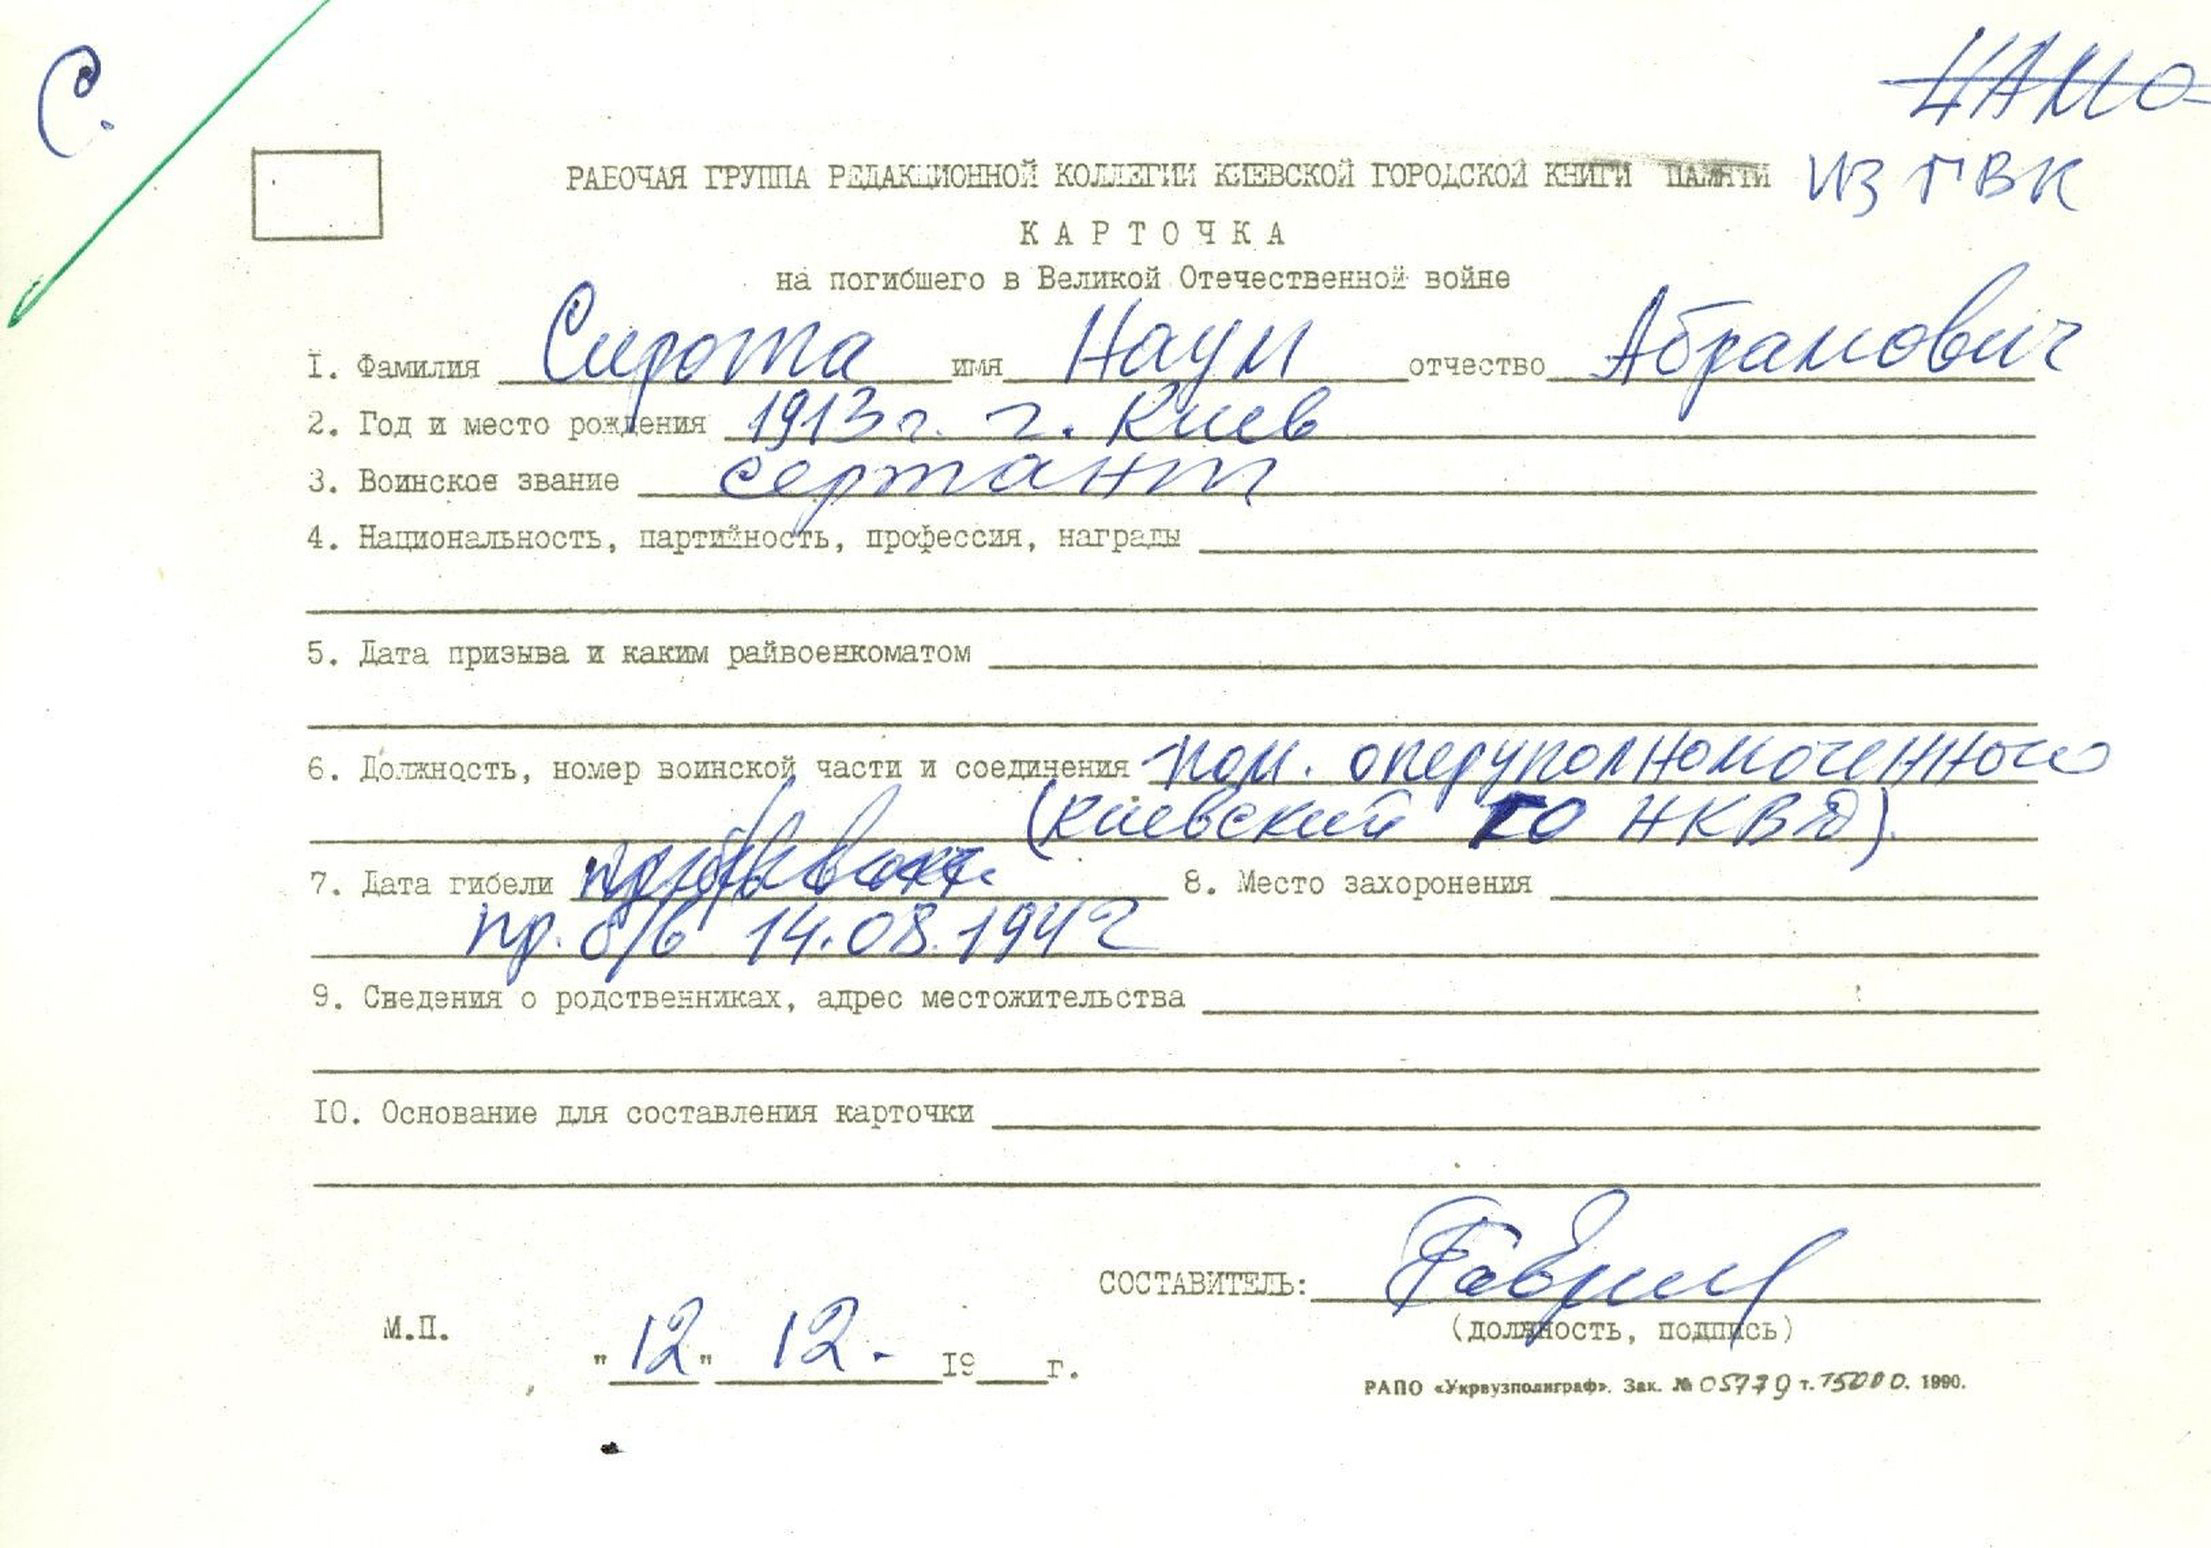 С.
ЦАМО
РАБОЧАЯ ГРУППА РЕДАКЦИОННОЙ КОЛЛЕГИИ КИЕВСКОЙ ГОРОДСКОЙ КНИГИ ПАМЯТИ ИЗ ГВК
КАРТОЧКА
на погибшего в Великой Отечественной войне
1. Фамилия Сирота имя Наум отчество Абрамович
2. Год и место рождения 1913 г. г. Киев
3. Воинское звание сержант
4. Национальность, партийность, профессия, награды
5. Дата призыва и каким райвоенкоматом
6. Должность, номер воинской части и соединения пом. оперуполномоченного
(Киевский ГО НКВД).
7. Дата гибели 8. Место захоронения
пр. б/в 14.08.1942
9. Сведения о родственниках, адрес местожительства
10. Основание для составления карточки
СОСТАВИТЕЛЬ:
(должность, подпись)
М.П.
"12" 12. 19 г.
РАПО «Укрвузполиграф». Зак. № 05779 т. 15000. 1990.